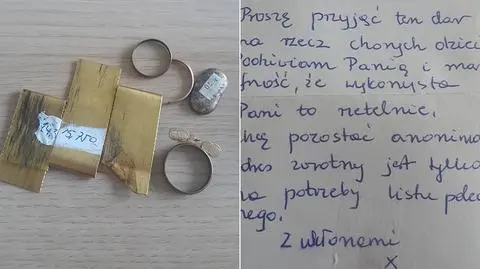 Proszę przyjąć ten dar
na rzecz chorych dzieci
Podziwiam Panią i ma
fność, że wykorzysta
Pani to rzetelnie.
hcę pozostać anonim
dres zwrotny jest tylko
na potrzeby listu polec
nego.
Z ukłonami
X